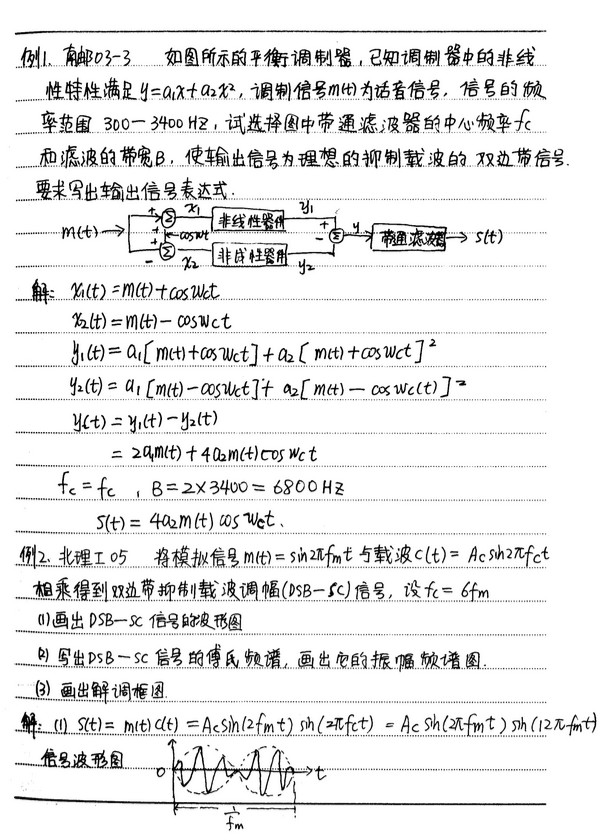 例1. 南邮03-3 如图所示的平衡调制器,已知调制器中的非线
性特性满足y=a₁x+a₂x²,调制信号m(t)为话音信号,信号的频
率范围300-3400HZ,试选择图中带通滤波器的中心频率fc
和滤波的带宽B,使输出信号为理想的抑制载波的双边带信号.
要求写出输出信号表达式.
m(t) + Σ x₁ 非线性器件 y₁
+ coswt + - Σ y 带通滤波器 s(t)
- Σ x₂ 非线性器件 y₂
解: x₁(t)=m(t)+coswct
x₂(t)=m(t)-coswct
y₁(t)=a₁[m(t)+coswct]+a₂[m(t)+coswct]²
y₂(t)=a₁[m(t)-coswct]+a₂[m(t)-coswc(t)]²
y(t)=y₁(t)-y₂(t)
=2a₁m(t)+4a₂m(t)coswct
fc=fc, B=2×3400=6800HZ
s(t)=4a₂m(t)coswct.
例2. 北理工05 将模拟信号m(t)=sin2πfmt与载波c(t)=Acsin2πfct
相乘得到双边带抑制载波调幅(DSB-SC)信号,设fc=6fm
(1)画出DSB-SC信号的波形图
(2)写出DSB-SC信号的傅氏频谱,画出它的振幅频谱图.
(3)画出解调框图.
解: (1) s(t)=m(t)c(t)=Acsin(2fmt)sin(2πfct)=Acsin(2πfmt)sin(12πfmt)
信号波形图 0 t
1/fm